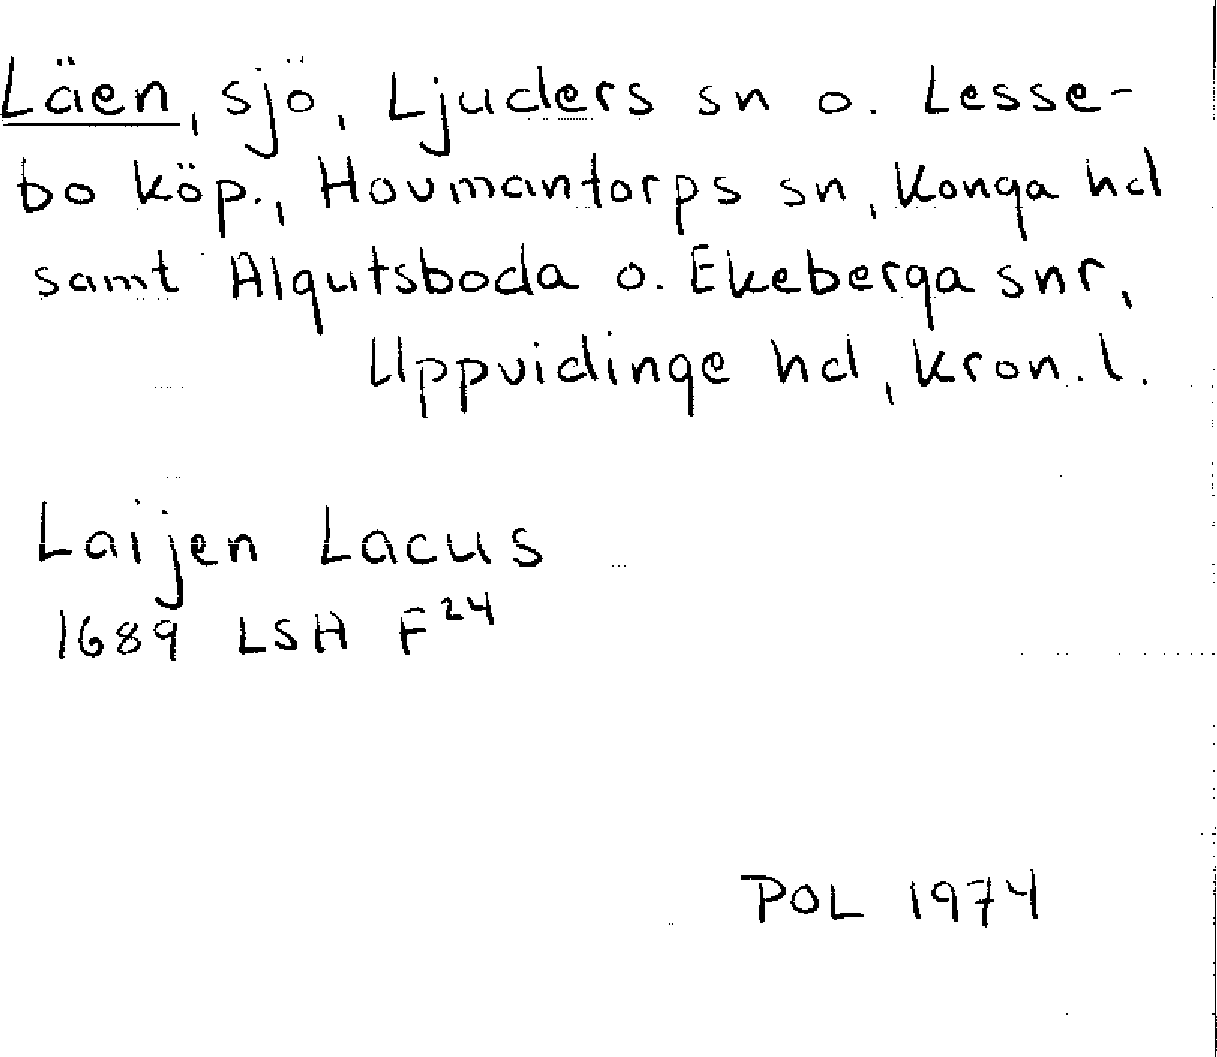 Läen, sjö, Ljuders sn o. Lesse-
bo köp., Hovmantorps sn, Konga hd
samt Algutsboda o. Ekeberga snr,
Uppvidinge hd, Kron. l.
Laijen Lacus
1689 LSH F24
POL 1974